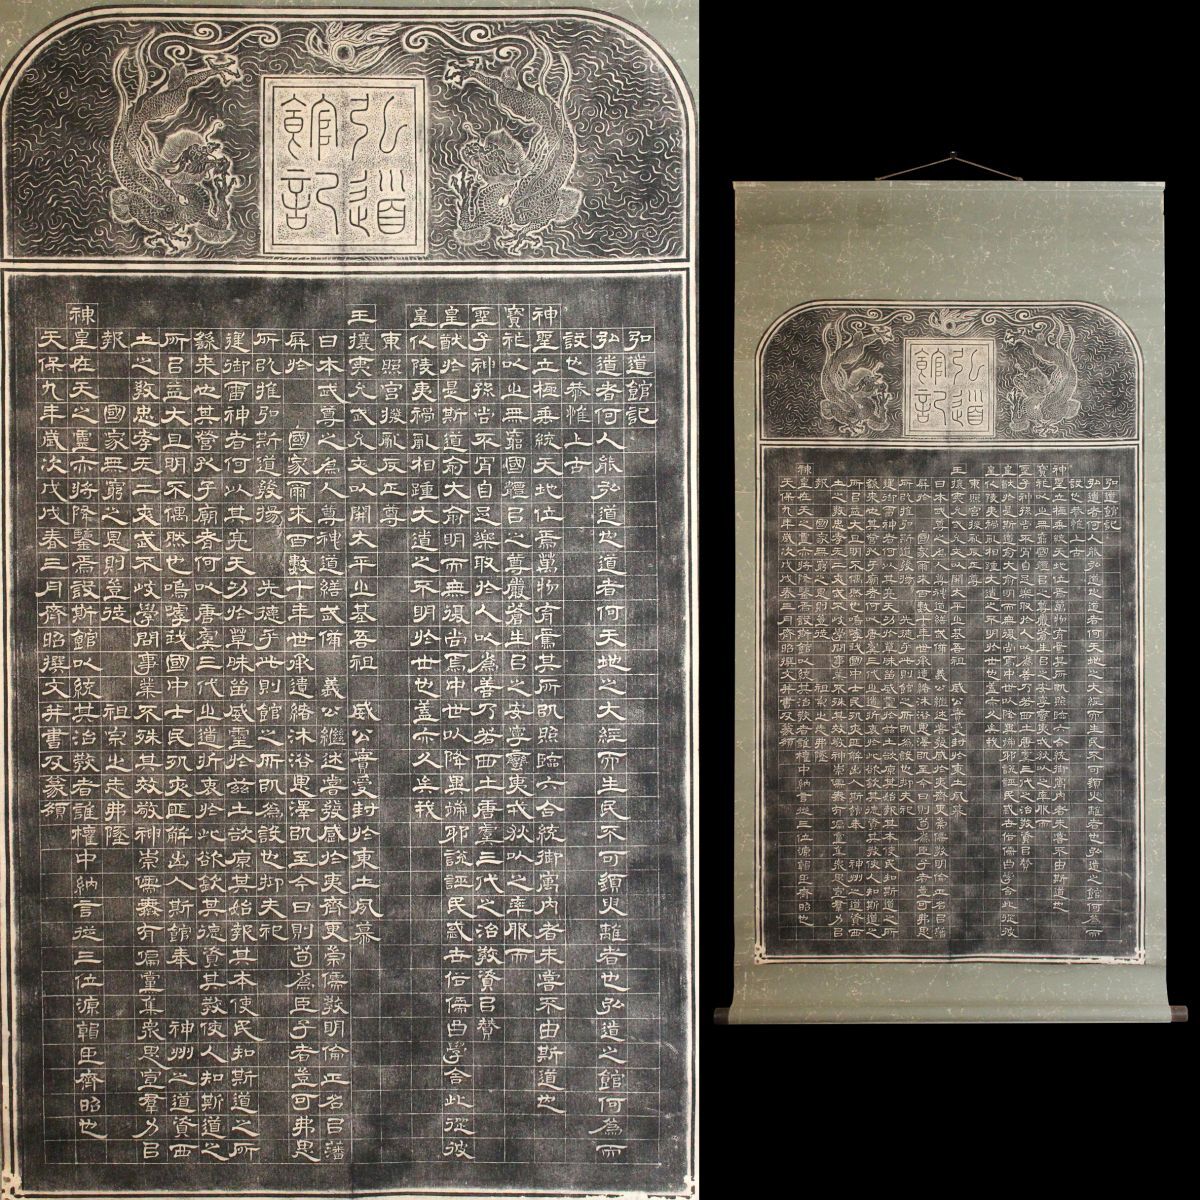 弘道
館記
弘道館記
弘道者何人能弘道也道者何天地之大經而生民不可須臾離者也弘道之館何為而
設也恭惟上古
神聖立極垂統天地位焉萬物育焉其所以照臨六合統御寓內者未嘗不由斯道也
寶祚以之無窮國體以之尊嚴蒼生以之安寧蠻夷戎狄以之率服而
聖子神孫尚不肯自足樂取於人以為善乃若西土唐虞三代之治教資以贊
皇猷於是斯道愈大愈明而無復尚焉中世以降異端邪說誣民惑世俗儒曲學舍此從彼
皇化陵夷禍亂相踵大道之不明於世也蓋亦久矣我
東照宮撥亂反正尊
王攘夷允武允文以開太平之基吾祖 威公實受封於東土夙慕
日本武尊之為人尊神道繕武備 義公繼述嘗發感於夷齊更崇儒教明倫正名以藩
屏於 國家爾來百數十年世承遺緒沐浴恩澤以至今日則苟為臣子者豈可弗思
所以推弘斯道發揚 先德乎此則館之所以為設也抑夫祀
建御雷神者何以其亮天功於草昧留威靈於茲土欲原其始報其本使民知斯道之所
繇來也其營孔子廟者何以唐虞三代之道折衷於此欲欽其德資其教使人知斯道之
所以益大且明不偶然也嗚嘑我國中士民夙夜匪解出入斯館奉 神州之道資西
土之教忠孝无二文武不岐學問事業不殊其效敬神崇儒無有偏黨集眾思宣羣力以
報 國家無窮之恩則豈徒 祖宗之志弗墜
神皇在天之靈亦將降鑒焉設斯館以統其治教者誰權中納言從三位源朝臣齊昭也
天保九年歲次戊戌春三月齊昭撰文并書及篆額